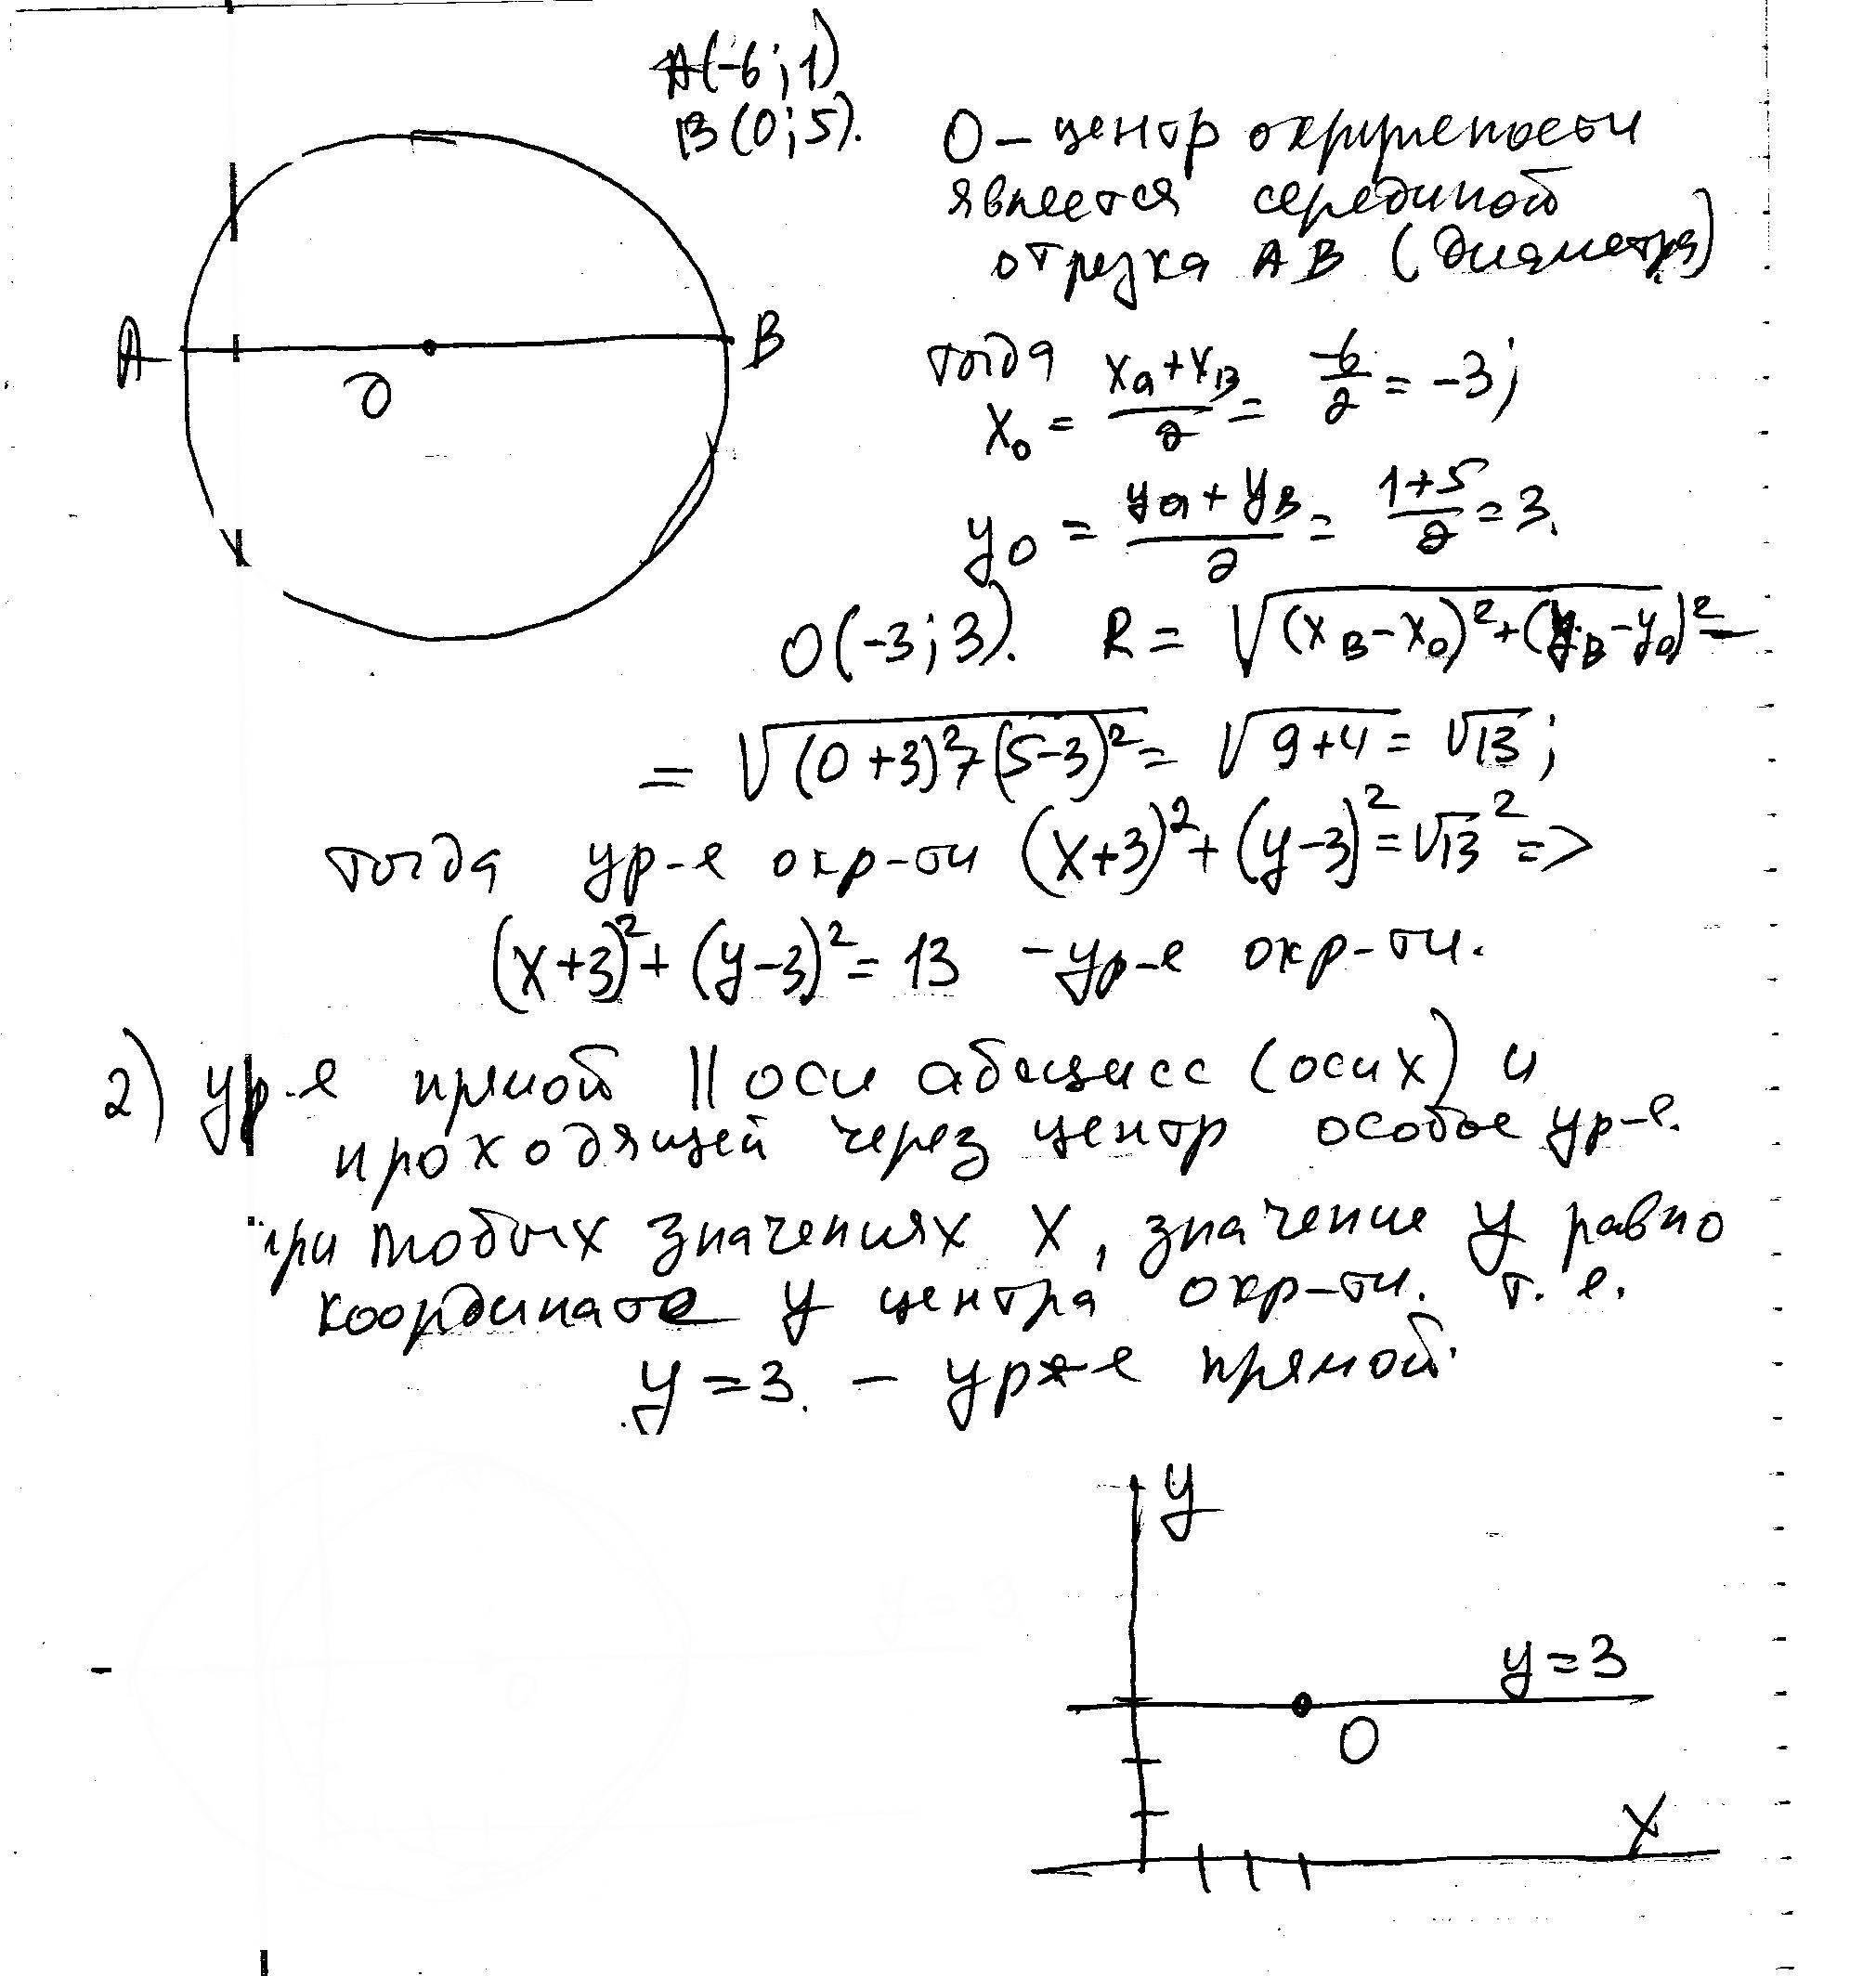 A(-6;1)
B(0;5).
О – центр окружности
является серединой
отрезка AB (диаметра)
A
B
O
тогда
x₀ = (xₐ + x_B)/2 = -6/2 = -3;
y₀ = (yₐ + y_B)/2 = (1+5)/2 = 3.
O(-3;3). R = √((x_B – x₀)² + (y_B – y₀)²) =
= √((0+3)² + (5-3)²) = √(9+4) = √13;
тогда ур-е окр-ти (x+3)² + (y-3)² = √13² =>
(x+3)² + (y-3)² = 13 – ур-е окр-ти.
2) ур-е прямой || оси абсцисс (оси x) и
проходящей через центр особое ур-е.
при любых значениях x, значение y равно
координате y центра окр-ти. т.е.
y = 3. – ур-е прямой.
y
y = 3
O
x